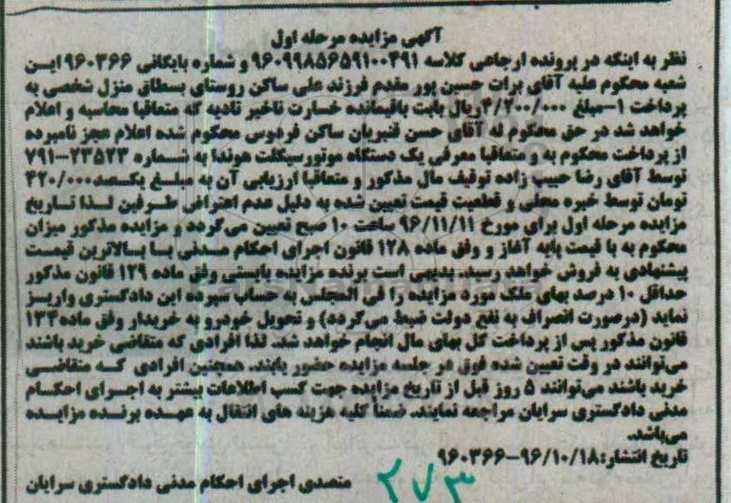 آگهی مزایده مرحله اول
نظر به اینکه در پرونده ارجاعی کلاسه ۹۶۰۹۹۸۵۶۵۹۱۰۰۴۹۱ و شماره بایگانی ۹۶۰۳۶۶ این
شعبه محکوم علیه آقای برات حسین پور مقدم فرزند علی ساکن روستای بسطاق منزل شخصی به
پرداخت ۱-مبلغ ۴/۲۰۰/۰۰۰ریال بابت باقیمانده خسارت تاخیر تادیه که متعاقبا محاسبه و اعلام
خواهد شد در حق محکوم له آقای حسن قنبریان ساکن فردوس محکوم شده اعلام عجز نامبرده
از پرداخت محکوم به و متعاقبا معرفی یک دستگاه موتورسیکلت هوندا به شماره ۲۳۵۲۳-۷۹۱
توسط آقای رضا حبیب زاده توقیف مال مذکور و متعاقبا ارزیابی آن به مبلغ یکصد۴۲۰/۰۰۰
تومان توسط خبره محلی و قطعیت قیمت تعیین شده به دلیل عدم اعتراض طرفین لذا تاریخ
مزایده مرحله اول برای مورخ ۹۶/۱۱/۱۱ ساعت ۱۰ صبح تعیین می‌گردد و مزایده مذکور میزان
محکوم به با قیمت پایه آغاز و وفق ماده ۱۲۸ قانون اجرای احکام مدنی با بالاترین قیمت
پیشنهادی به فروش خواهد رسید. بدیهی است برنده مزایده بایستی وفق ماده ۱۲۹ قانون مذکور
حداقل ۱۰ درصد بهای ملک مورد مزایده را فی المجلس به حساب سپرده این دادگستری واریز
نماید (درصورت انصراف به نفع دولت ضبط می‌گردد) و تحویل خودرو به خریدار وفق ماده۱۳۴
قانون مذکور پس از پرداخت کل بهای مال انجام خواهد شد. لذا افرادی که متقاضی خرید باشند
می‌توانند در وقت تعیین شده فوق در جلسه مزایده حضور یابند. همچنین افرادی که متقاضی
خرید باشند می‌توانند ۵ روز قبل از تاریخ مزایده جهت کسب اطلاعات بیشتر به اجرای احکام
مدنی دادگستری سرایان مراجعه نمایند. ضمنا کلیه هزینه های انتقال به عهده برنده مزایده
می‌باشد.
تاریخ انتشار:۹۶/۱۰/۱۸-۹۶۰۳۶۶
متصدی اجرای احکام مدنی دادگستری سرایان
۲۷۳